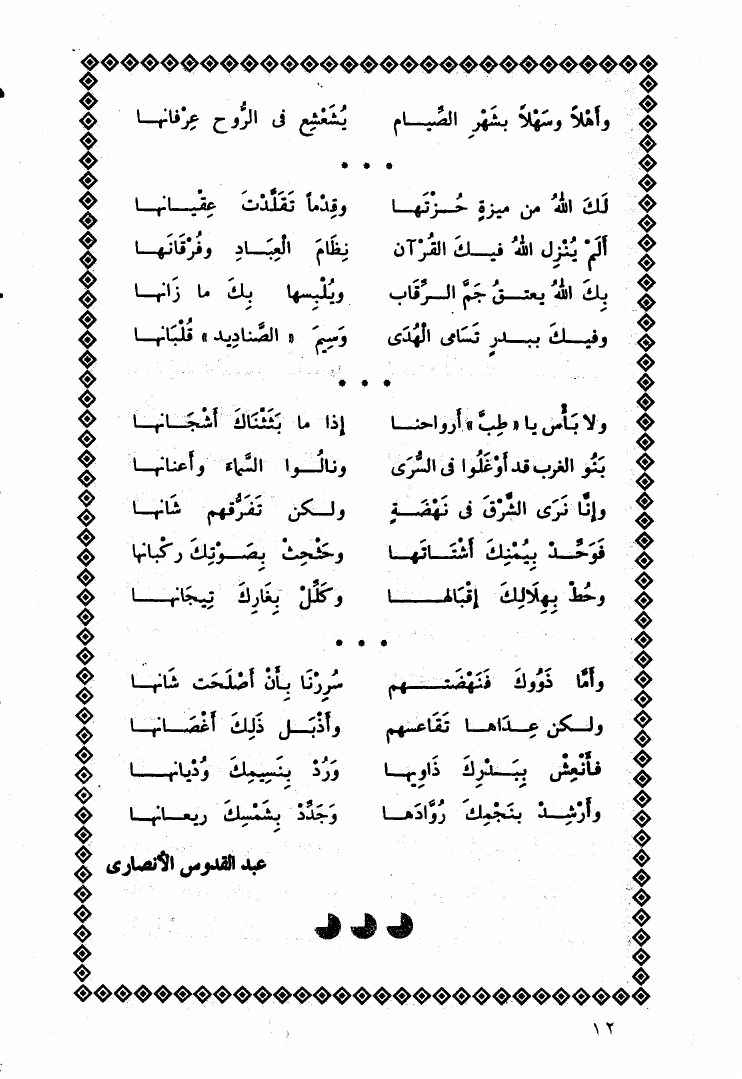 وأَهْلاً وسَهْلاً بشَهْرِ الصِّيام يُشَعْشِع فى الرُّوح عِرْفانها
* * *
لَكَ اللهُ من ميزةٍ حُزْتَها وقِدْماً تَقَلَّدْتَ عِقْيانها
أَلَمْ يُنْزِل اللهُ فيكَ القُرْآن نِظَامَ الْعِبَادِ وفُرْقَانَها
بِكَ اللهُ يعتقُ جَمَّ الرِّقَاب ويُلْبِسها بِكَ ما زَانها
وفيكَ ببدرٍ تَسَامى الْهُدَى وَسِيمَ « الصَّناديد » قُلْبَانها
* * *
ولا بَأْس يا « طِبَّ » أرواحنا إذا ما بَثَثْنَاكَ أَشْجَانها
بَنُو الغرب قد أَوْغَلُوا فى السُّرَى ونالُوا السَّماءَ وأعنانها
وإنَّا نَرَى الشَّرْقَ فى نَهْضَةٍ ولكن تَفَرُّقهم شَانها
فَوَحِّدْ بِيُمْنِكَ أَشْتَاتَها وحَثْحِثْ بِصَوْتِكَ ركْبانها
وحُطْ بِهِلَالِكَ إقْبَالها وكَلِّلْ بِغَارِكَ تِيجَانها
* * *
وأَمَّا ذَوُوكَ فَنَهْضَتهم سُرِرْنَا بِأَنْ أَصْلَحَت شَانها
ولكن عِدَاها تَقَاعسهم وأَذْبَل ذَلِكَ أَغْصَانها
فأَنْعِشْ بِبَدْرِكَ ذَاويها وَرُدْ بِنَسِيمِكَ وُدْيانها
وأَرْشِدْ بنَجْمِكَ رُوَّادَها وَجَدِّدْ بِشَمْسِكَ ريعانها
عبد القدوس الأنصارى
١٢